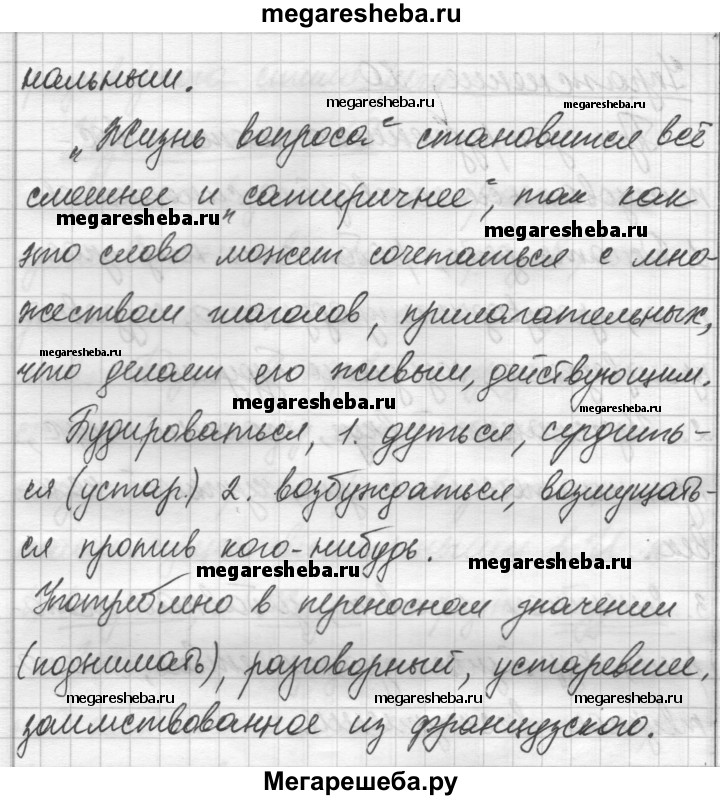 megaresheba.ru
нальным.
megaresheba.ru megaresheba.ru
„Жизнь вопроса“ становится всё
смешнее и „сатиричнее“, так как
megaresheba.ru megaresheba.ru
это слово может сочетаться с мно-
жеством глаголов, прилагательных,
megaresheba.ru
что делает его живым, действующим.
megaresheba.ru megaresheba.ru
Будироваться, 1. дуться, сердить-
ся (устар.) 2. возбуждаться, возмущать-
ся против кого-нибудь.
megaresheba.ru megaresheba.ru
Употреблено в переносном значении
(поднимать), разговорный, устаревшее,
megaresheba.ru megaresheba.ru megaresheba.ru
заимствованное из французского.
Мегарешеба.ру